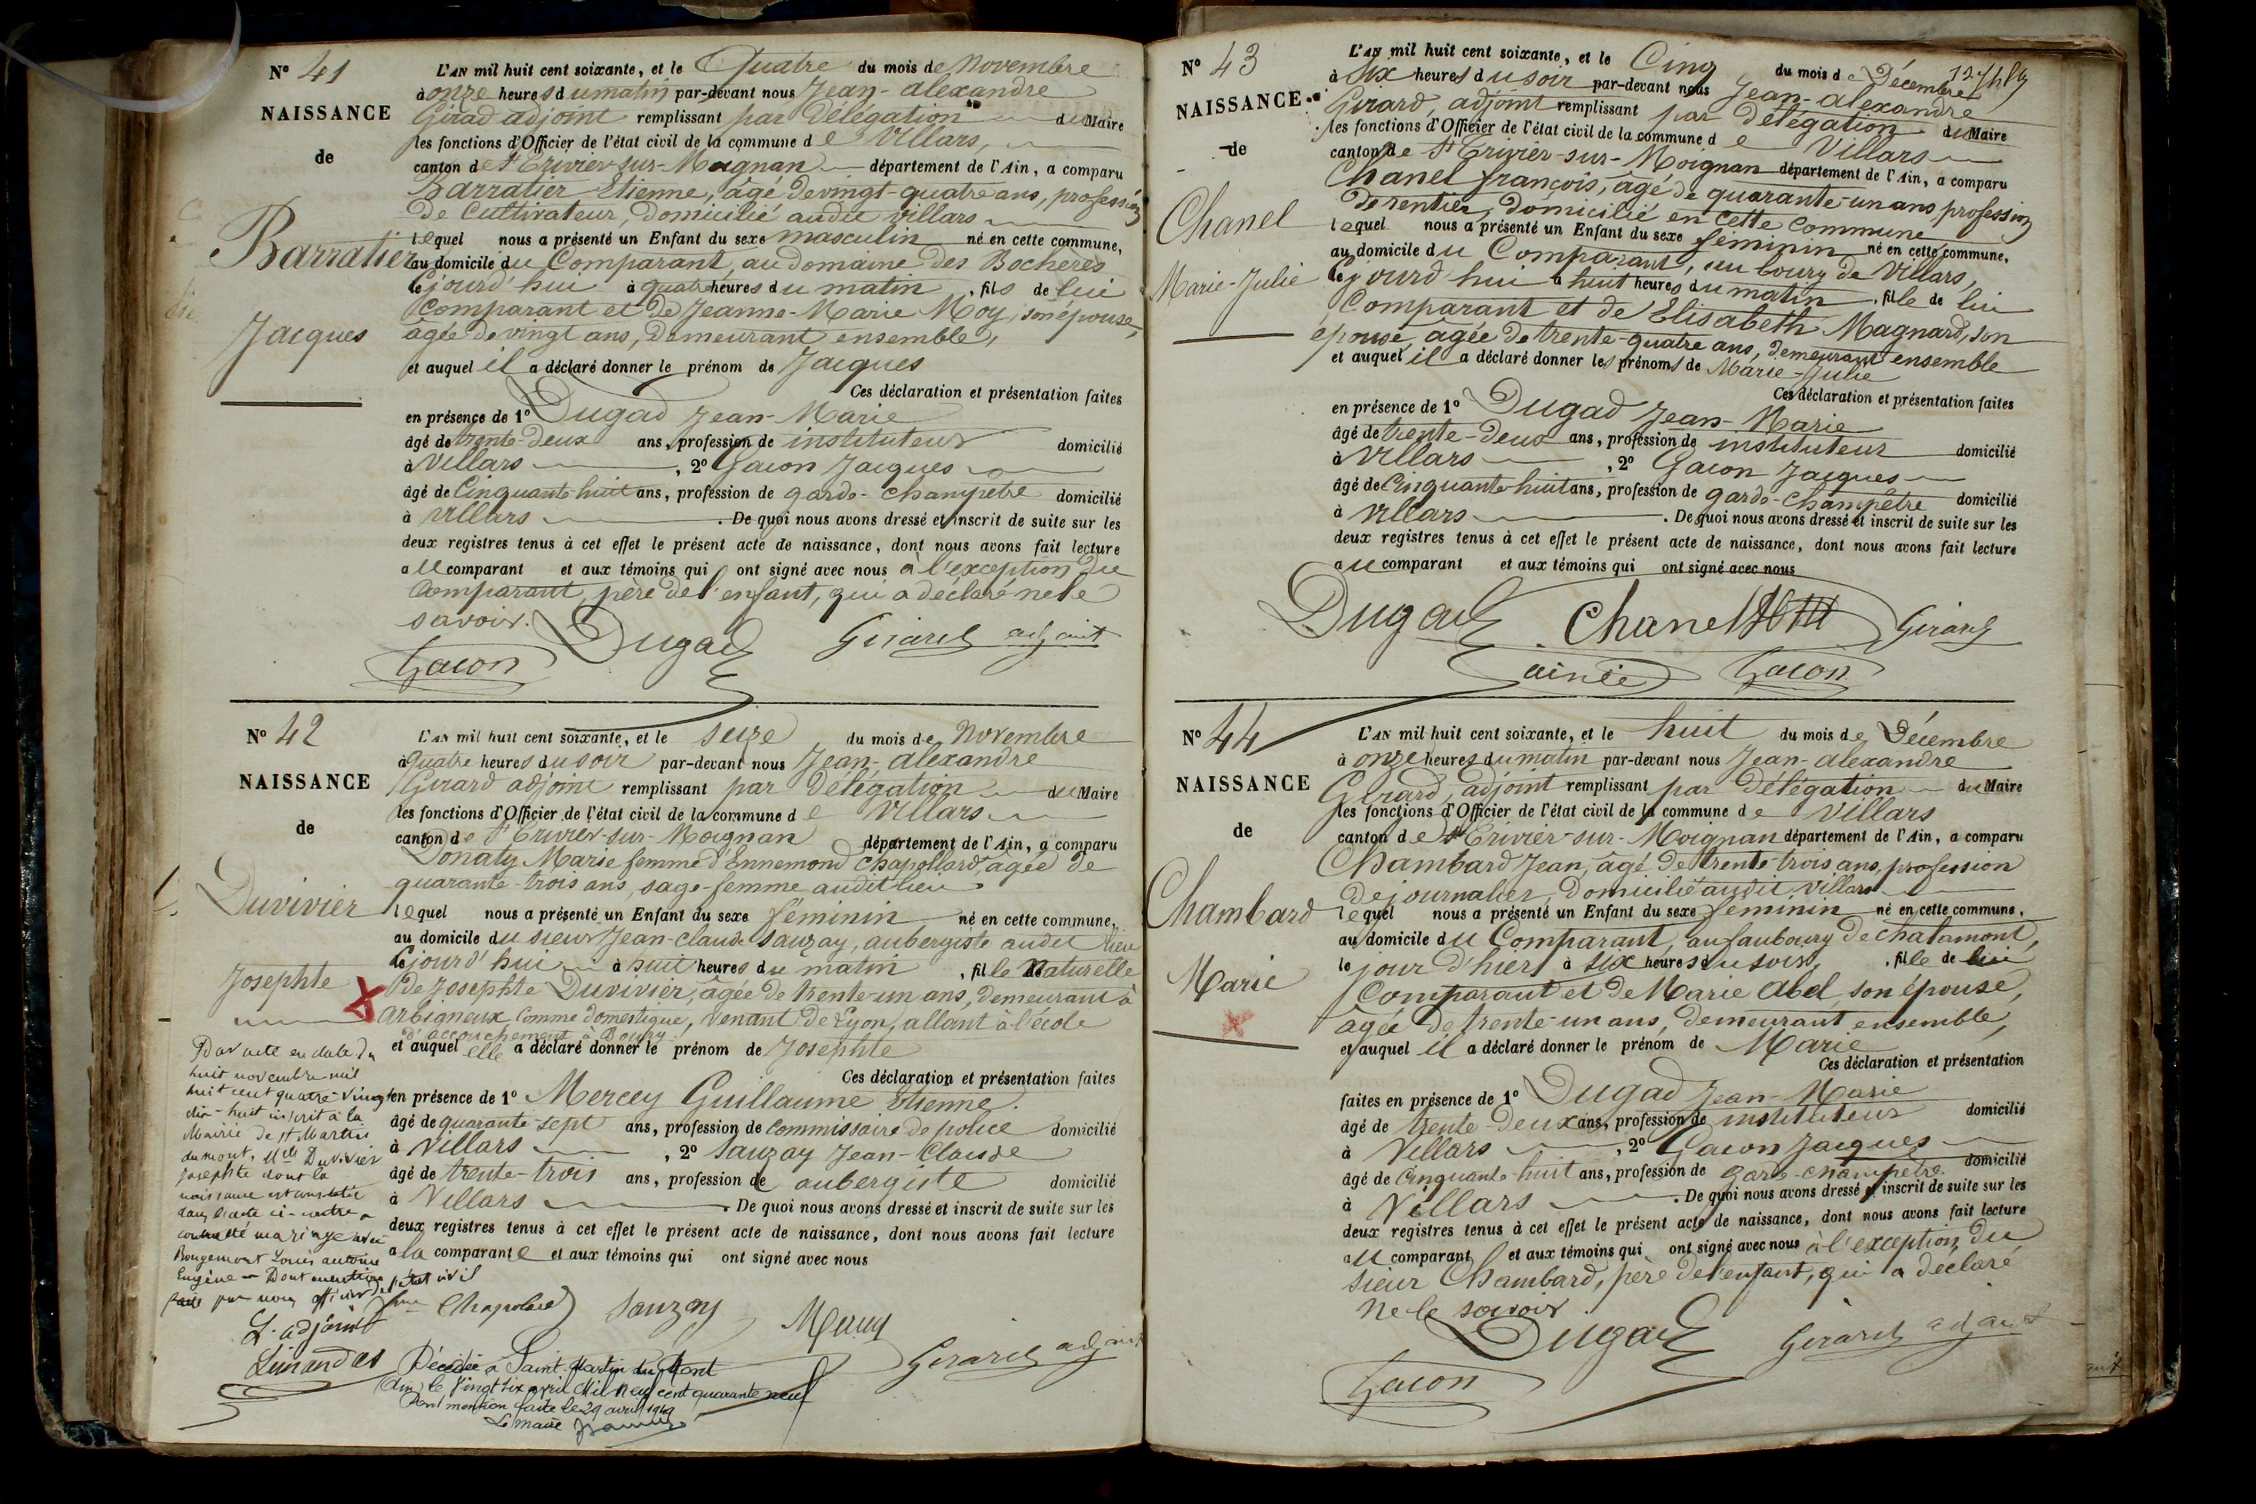 N° 41
NAISSANCE
de
Barratier
Jacques
L'AN mil huit cent soixante, et le Quatre du mois de Novembre
à onze heures du matin par-devant nous Jean-alexandre
Girad adjoint remplissant par Délégation du Maire
les fonctions d'Officier de l'état civil de la commune de Villars,
canton de St Trivier-sur-Moignan département de l'Ain, a comparu
Barratier Etienne, âgé de vingt-quatre ans, profession
de Cultivateur, domicilié audit villars
lequel nous a présenté un Enfant du sexe masculin né en cette commune,
au domicile du Comparant, au domaine des Bocheres
cejourd'hui à quatre heures du matin, fils de lui
Comparant et de Jeanne-Marie Moy, son épouse,
âgée de vingt ans, demeurant ensemble,
et auquel il a déclaré donner le prénom de Jacques
Ces déclaration et présentation faites
en présence de 1° Dugad Jean-Marie
âgé de trente-deux ans, profession de instituteur domicilié
à Villars, 2° Gacon Jacques
âgé de Cinquante-huit ans, profession de garde-champêtre domicilié
à Villars. De quoi nous avons dressé et inscrit de suite sur les
deux registres tenus à cet effet le présent acte de naissance, dont nous avons fait lecture
au comparant et aux témoins qui ont signé avec nous à l'exception du
Comparant, père de l'enfant, qui a déclaré ne le
savoir.
Dugad Girard adjoint
Gacon
N° 42
NAISSANCE
de
Duvivier
Josephte
L'AN mil huit cent soixante, et le seize du mois de Novembre
à quatre heures du soir par-devant nous Jean-alexandre
Girard adjoint remplissant par Délégation du Maire
les fonctions d'Officier de l'état civil de la commune de Villars
canton de St Trivier-sur-Moignan département de l'Ain, a comparu
Donaty Marie femme d'Ennemond Chapollard, agée de
quarante-trois ans, sage-femme audit lieu
lequel nous a présenté un Enfant du sexe féminin né en cette commune,
au domicile du sieur Jean-claude Sauzay, aubergiste audit lieu
cejourd'hui à huit heures du matin, fille Naturelle
de Josephte Duvivier, âgée de trente-un ans, demeurant à
Arbigneux comme domestique, venant de Lyon, allant à l'école
d'accouchement à Bourg.
et auquel elle a déclaré donner le prénom de Josephte
Ces déclaration et présentation faites
en présence de 1° Mercey Guillaume Etienne.
âgé de quarante-sept ans, profession de Commissaire de police domicilié
à Villars, 2° Sauzay Jean-Claude
âgé de trente-trois ans, profession de aubergiste domicilié
à Villars. De quoi nous avons dressé et inscrit de suite sur les
deux registres tenus à cet effet le présent acte de naissance, dont nous avons fait lecture
a la comparante et aux témoins qui ont signé avec nous
Par acte en date du
huit novembre mil
huit cent quatre-vingt
dix-huit inscrit à la
Mairie de St Martin
du mont, Melle Duvivier
Josephte dont la
naissance est constatée
dans l'acte ci-contre a
contracté mariage avec
Rougemont Louis antoine
Eugène - Dont mention
faite par nous officier de l'état civil
L'adjoint
fme Chapolard Sauzay Mercey
Girard adjoint
Décédée à Saint-Martin du Mont
(Ain) le Vingt six avril Mil neuf cent quarante neuf
Dont mention faite le 29 avril 1949
Le Maire
N° 43
NAISSANCE
de
Chanel
Marie-Julie
L'AN mil huit cent soixante, et le Cinq du mois de Décembre
à Six heures du soir par-devant nous Jean-alexandre
Girard, adjoint remplissant par Délégation du Maire
les fonctions d'Officier de l'état civil de la commune de Villars
canton de St Trivier-sur-Moignan département de l'Ain, a comparu
Chanel françois, âgé de quarante-un ans, profession
de rentier, domicilié en cette Commune
lequel nous a présenté un Enfant du sexe féminin né en cette commune,
au domicile du Comparant, au bourg de Villars,
cejourd'hui à huit heures du matin, fille de lui
Comparant et de Elisabeth Magnard, son
épouse, âgée de trente-quatre ans, demeurant ensemble
et auquel il a déclaré donner les prénoms de Marie-Julie
Ces déclaration et présentation faites
en présence de 1° Dugad Jean-Marie
âgé de trente-deux ans, profession de instituteur domicilié
à Villars, 2° Gacon Jacques
âgé de Cinquante-huit ans, profession de garde-champêtre domicilié
à Villars. De quoi nous avons dressé et inscrit de suite sur les
deux registres tenus à cet effet le présent acte de naissance, dont nous avons fait lecture
au comparant et aux témoins qui ont signé avec nous
Dugad Chanel Girard
ainée Gacon
N° 44
NAISSANCE
de
Chambard
Marie
L'AN mil huit cent soixante, et le huit du mois de Décembre
à onze heures du matin par-devant nous Jean-alexandre
Girard, adjoint remplissant par Délégation du Maire
les fonctions d'Officier de l'état civil de la commune de Villars
canton de St Trivier-sur-Moignan département de l'Ain, a comparu
Chambard Jean, âgé de trente-trois ans, profession
de journalier, domicilié audit villars
lequel nous a présenté un Enfant du sexe féminin né en cette commune,
au domicile du Comparant, au faubourg de chalamont,
le jour d'hier à six heures du soir, fille de lui
Comparant et de Marie Abel, son épouse,
âgée de trente-un ans, demeurant ensemble,
et auquel il a déclaré donner le prénom de Marie
Ces déclaration et présentation
faites en présence de 1° Dugad Jean-Marie
âgé de trente-deux ans, profession de instituteur domicilié
à Villars, 2° Gacon Jacques
âgé de Cinquante-huit ans, profession de garde-champêtre domicilié
à Villars. De quoi nous avons dressé et inscrit de suite sur les
deux registres tenus à cet effet le présent acte de naissance, dont nous avons fait lecture
au comparant et aux témoins qui ont signé avec nous à l'exception du
sieur Chambard, père de l'enfant, qui a déclaré
ne le savoir
Dugad Girard adjoint
Gacon